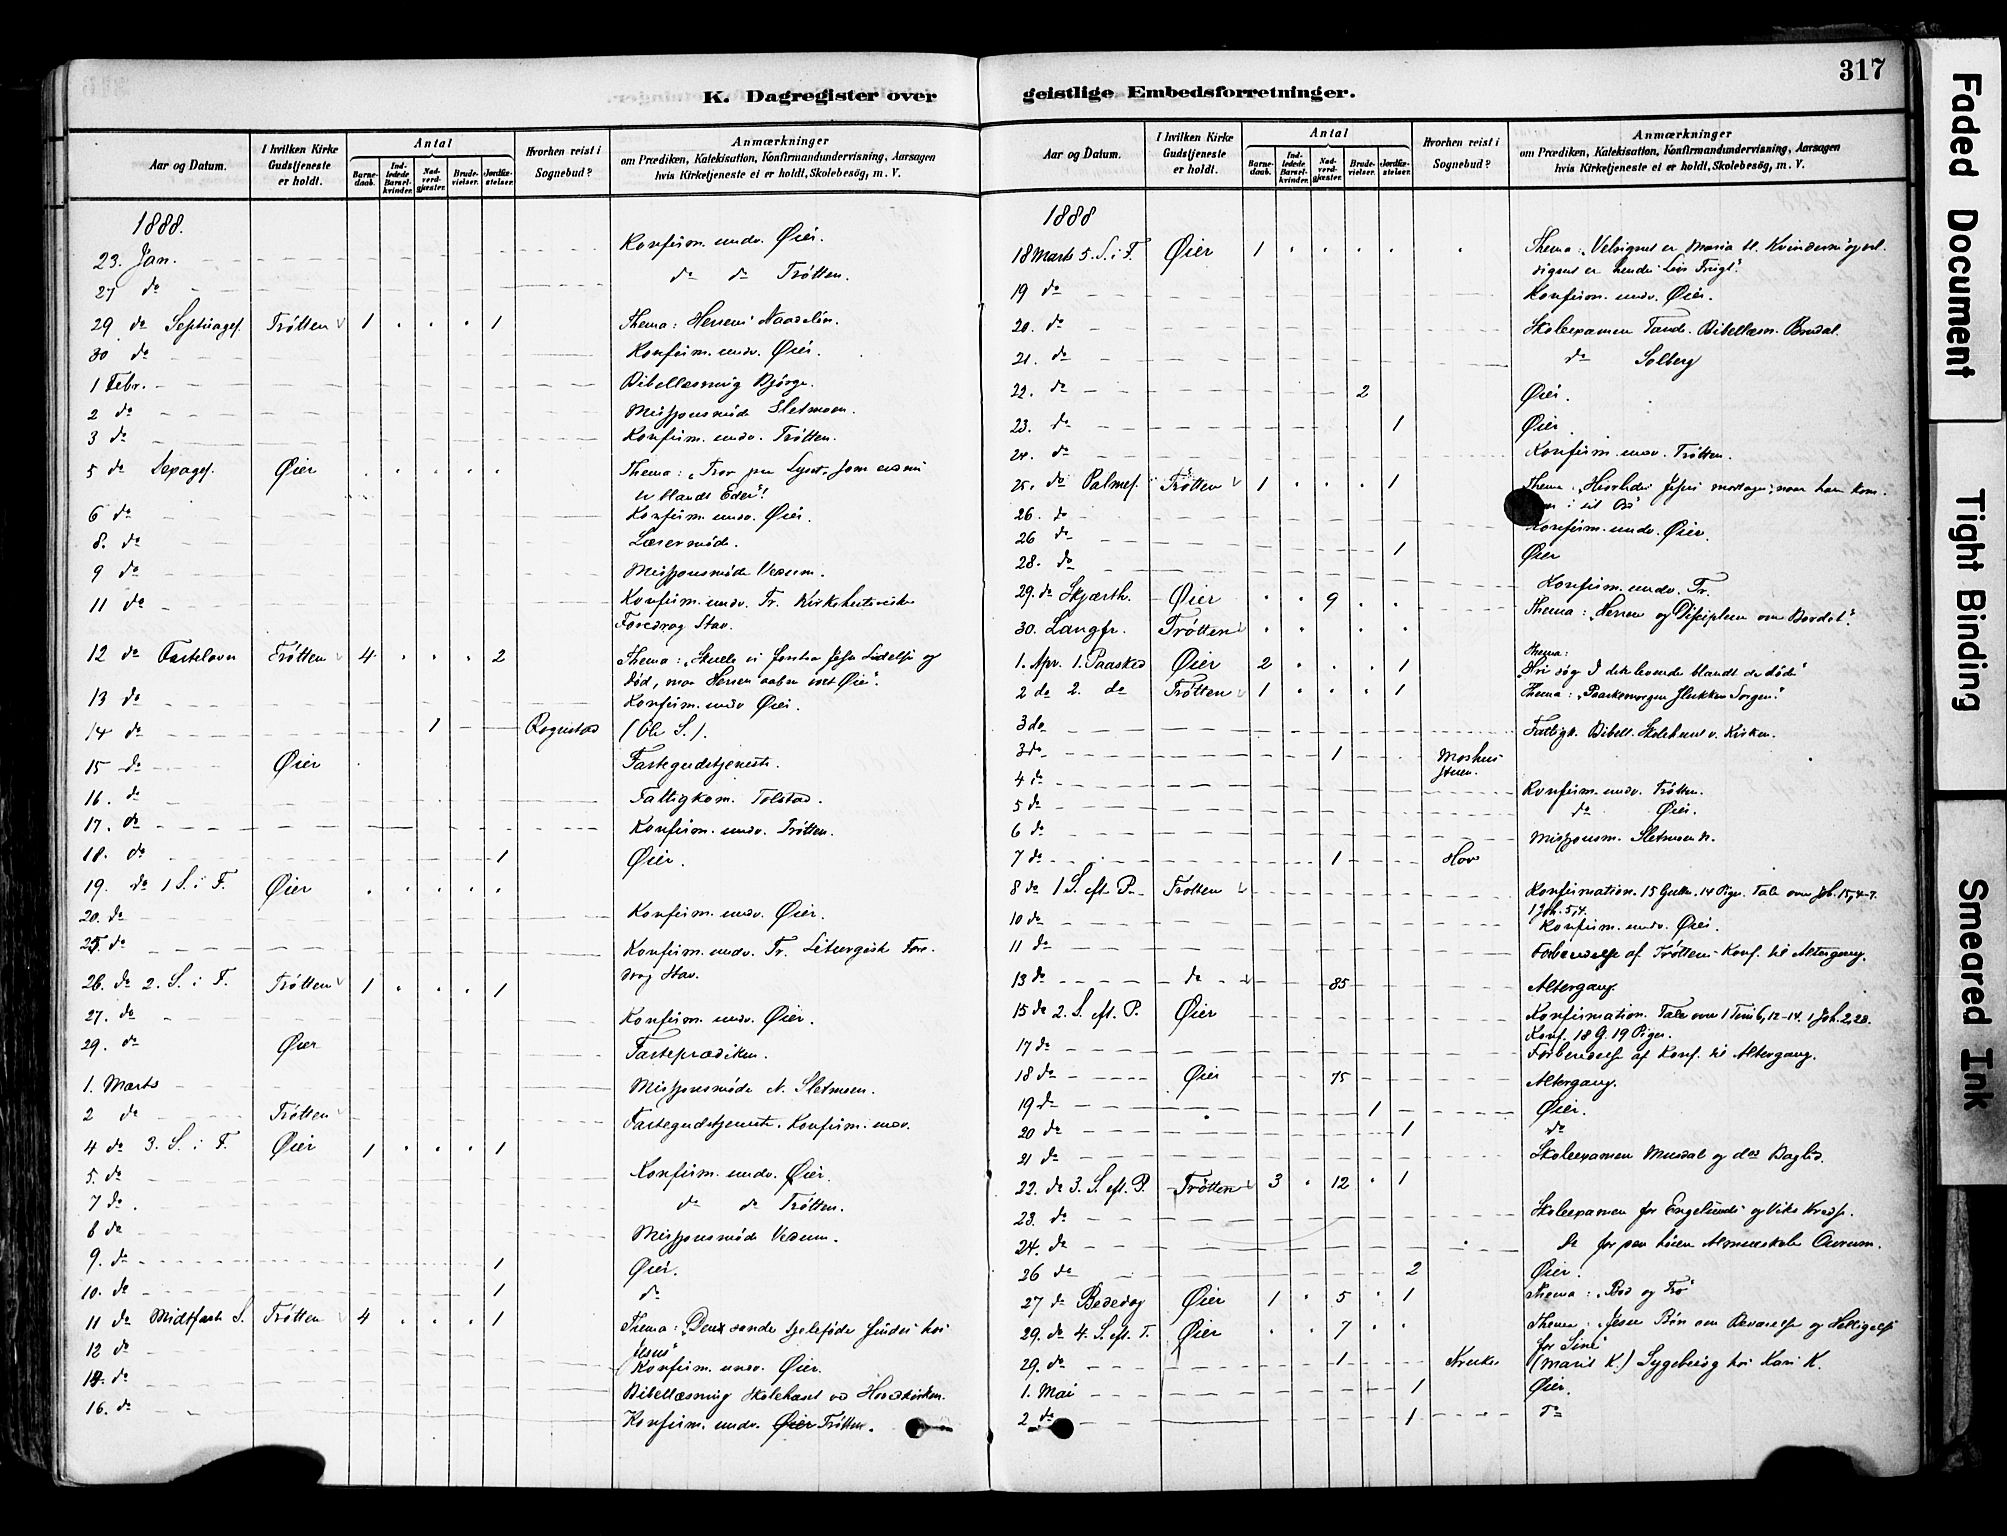 317
K. Dagregister over
geistlige Embedsforretninger.
Aar og Datum.
I hvilken Kirke Gudstjeneste er holdt.
Antal
Barnedaab.
Indledede Barselkvinder.
Nadverdgjæster.
Brudevielser.
Jordfæstelser.
Hvorhen reist i Sognebud?
Anmærkninger
om Prædiken, Katekisation, Konfirmandundervisning, Aarsagen
hvis Kirketjeneste ei er holdt, Skolebesøg, m. V.
1888.
23. Jan. Konfirm. undv. Øier.
27 do do do Trøtten.
29 do Septuages. Trøtten 1 . . . 1 Thema: Herrens
30 do Konfirm. undv. Øier.
1 Febr. Bibellæsning Bjørge.
2 do Missionsmøde Sletmoen.
3 do Konfirm. undv. Trøtten.
5 do Sexages. Øier . . . . . Thema:
er blandt Eder"!
6 do Konfirm. undv. Øier.
8. do
9 do Missionsmøde Vedum.
11 do Konfirm. undv. Tr.
Foredrag Stav.
12 do Fastelavn Trøtten 4 . . . 2 Thema: "Skulle vi forstaa Jesu Lidelse og
Død, maa Herren aabne vort Øie".
13 do Konfirm. undv Øier.
14 do 1 Rognstad (Ole S.).
15 do Øier Fastegudstjeneste.
16. do Fattigkom. Tolstad.
17. do Konfirm. undv. Trøtten.
18. do 1 Øier.
19. do 1 S. i F. Øier . . . . .
20. do Konfirm. undv. Øier.
25. do Konfirm. undv. Tr. Liturgisk Fore-
drag Stav.
26. do 2. S. i F. Trøtten 1 . . . 1
27. do Konfirm. undv. Øier.
29. do Øier Fasteprædiken.
1. Marts Missionsmøde N. Sletmoen.
2 do Trøtten Fastegudstjeneste. Konfirm. undv.
4 do 3. S. i F. Øier 1 . . . 1
5. do Konfirm. undv. Øier.
7 do. do do Trøtten.
8 do Missionsmøde Vedum.
9. do 1 Øier.
10. do 1 do
11 do Midtfaste S. Trøtten 4 . . . 1 Thema: "Den sande Sjeleføde findes hos
Jesus"
12 do Konfirm. undv. Øier.
14. do Bibellæsning Skolehuset ved
16. do Konfirm. undv. Øier Trøtten.
Aar og Datum.
I hvilken Kirke Gudstjeneste er holdt.
Antal
Barnedaab.
Indledede Barselkvinder.
Nadverdgjæster.
Brudevielser.
Jordfæstelser.
Hvorhen reist i Sognebud?
Anmærkninger
om Prædiken, Katekisation, Konfirmandundervisning, Aarsagen
hvis Kirketjeneste ei er holdt, Skolebesøg, m. V.
1888
18 Marts 5. S. i F. Øier 1 . . . . . Thema: "Velsignet er Maria bl. Kvinderne og vel-
signet er hendes Livs Frugt".
19 do Konfirm. undv. Øier.
20. do Skoleexamen Tande. Bibellæsn. Brudal.
21. do do Solberg
22. do 2 Øier.
23. do 1 Øier.
24. do Konfirm. undv. Trøtten.
25. do Palmes. Trøtten 1 . . . 1 Thema. "Hvorledes Jesus modtages, naar han kom-
26. do
26 do Konfirm. undv. Øier.
28. do 1 Øier
Konfirm. undv. Tr.
29. do Skjærth. Øier . . 9 . . Thema: "Herren og Disciplene om Bordet".
30. Langfr. Trøtten . . . .
1. Apr. 1. Paasked Øier 2 . . . 1 Thema:
"Hvi søg I den levende blandt de døde"
2 do 2. do Trøtten 1 . . . 1 Thema: "Paaskemorgen slukker Sorgen".
3 do Fattigk. Bibell. Skolehuset v. Kirken.
3 do 1 Moshus
4 do
5 do Konfirm. undv. Trøtten.
do Øier.
6 do Missionsm. Sletmoen N.
7 do 1 Hov
8 do 1 S. eft. P. Trøtten Konfirmation. 15 Gutter. 14 Piger. Tale over Joh. 15,4-7.
1 Joh. 5,4.
10 do Konfirm. undv. Øier.
11 do Forberedelse af Trøttens Konf. til Altergang.
13 do do 85 Altergang.
15 do 2. S. eft. P. Øier Konfirmation. Tale over 1 Tim 6,12-14. 1 Joh. 2,28.
Konf. 18 G. 19 Piger.
17 do Forberedelse af Konf. til Altergang.
18 do Øier 75 Altergang.
19 do 1 Øier.
20 do 1 do
21 do Skoleexamen Musdal og do Baglid.
22. do 3. S. eft. P. Trøtten 3 . 12 . 1
23. do Skoleexamen for Engelunds og Viks Kreds.
24. do do for den høiere Almueskole Aurum.
26 do 2 Øier.
27 do Bededag Øier 1 . 5 . 1 Thema: "Bod og Tro"
29. do 4. S. eft. P. Øier . . 7 . . Thema: "Jesu Bøn om Bevarelse og Helligelse
for Sine"
29. do 1 (Marit K.) Sygebesøg hos Kari K.
1. Mai 1 Øier.
2 do 1 do
Faded Document
Tight Binding
Smeared Ink